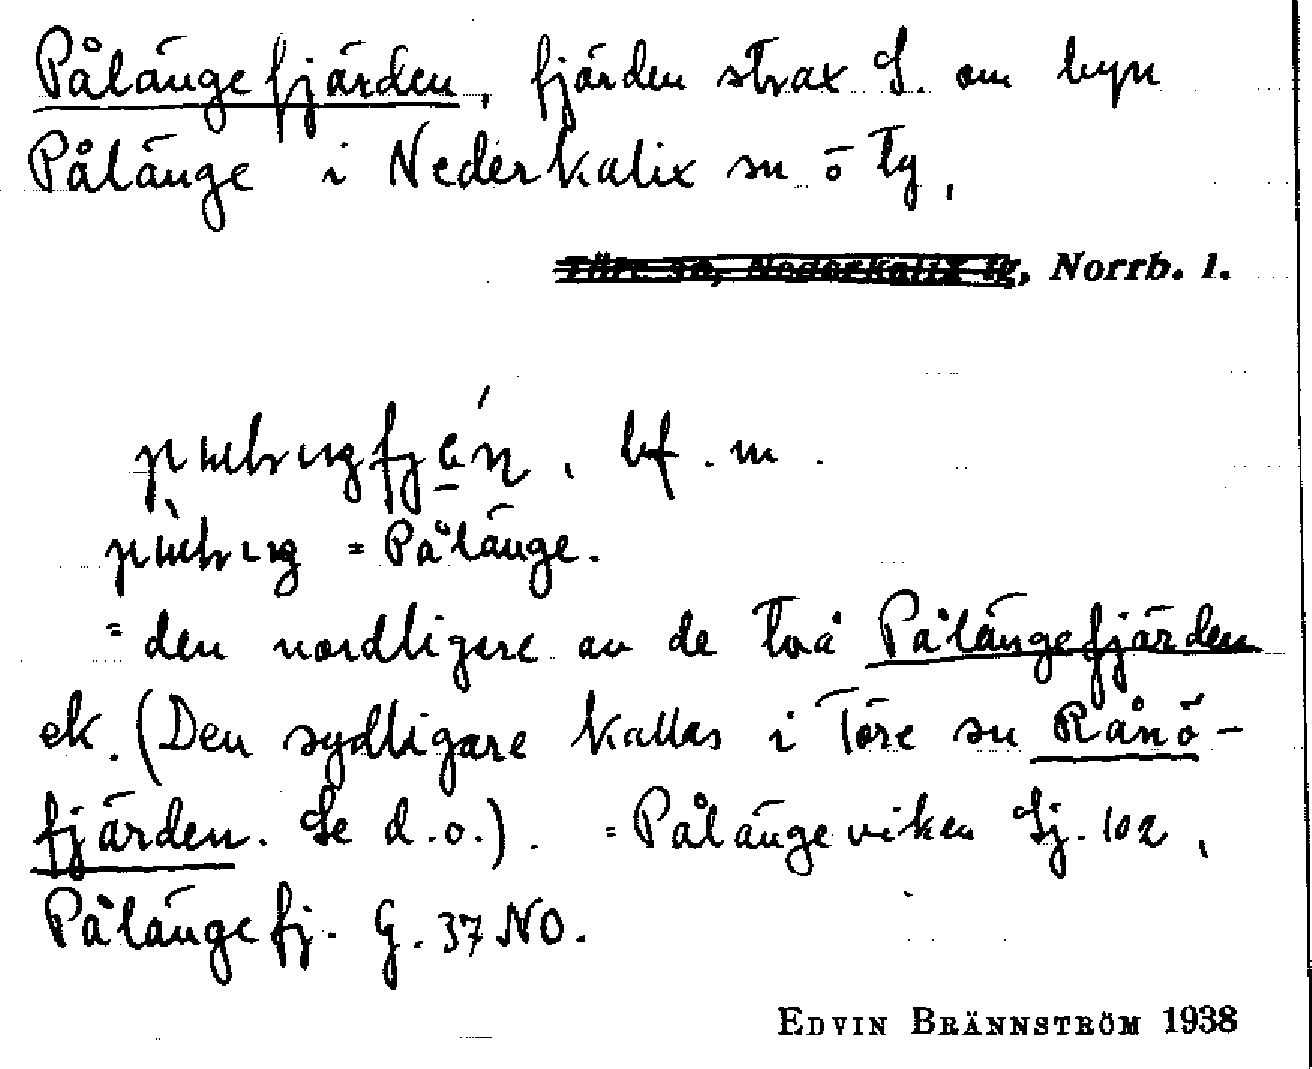 Pålängefjärden, fjärden strax S. om byn
Pålänge i Nederkalix sn o tg,
Töre sn, Nederkalix tg, Norrb. l.
bf. m.
= Pålänge.
= den nordligere av de två Pålängefjärden
ek. (Den sydligare kallas i Töre sn Rånö-
fjärden. Se d.o.). = Pålängeviken Sj. 102,
Pålängefj. G. 37 NO.
EDVIN BRÄNNSTRÖM 1938